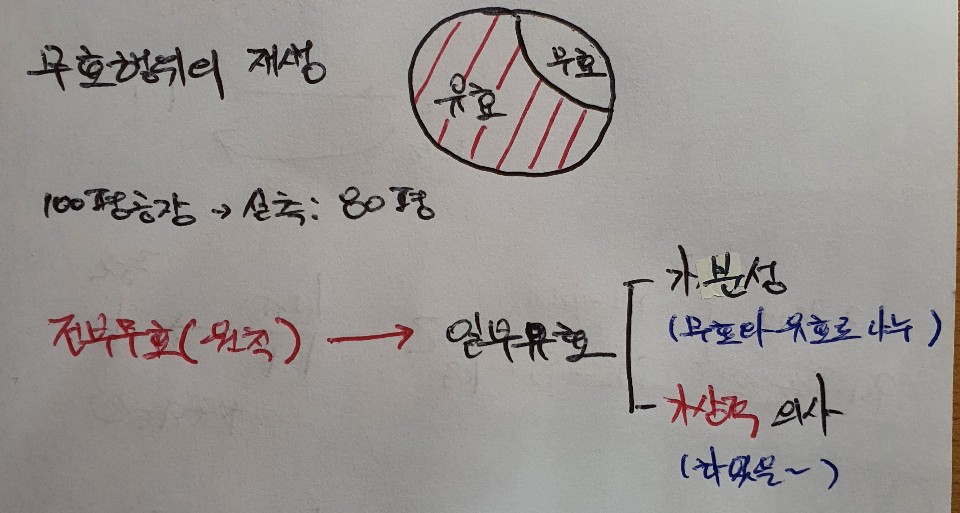 무효행위의 재생
무효
유효
100평공장 → 실측: 80평
전부무효(원칙) → 일부유효
가분성
(무효와 유효로 나누)
가상적 의사
(하였을~)